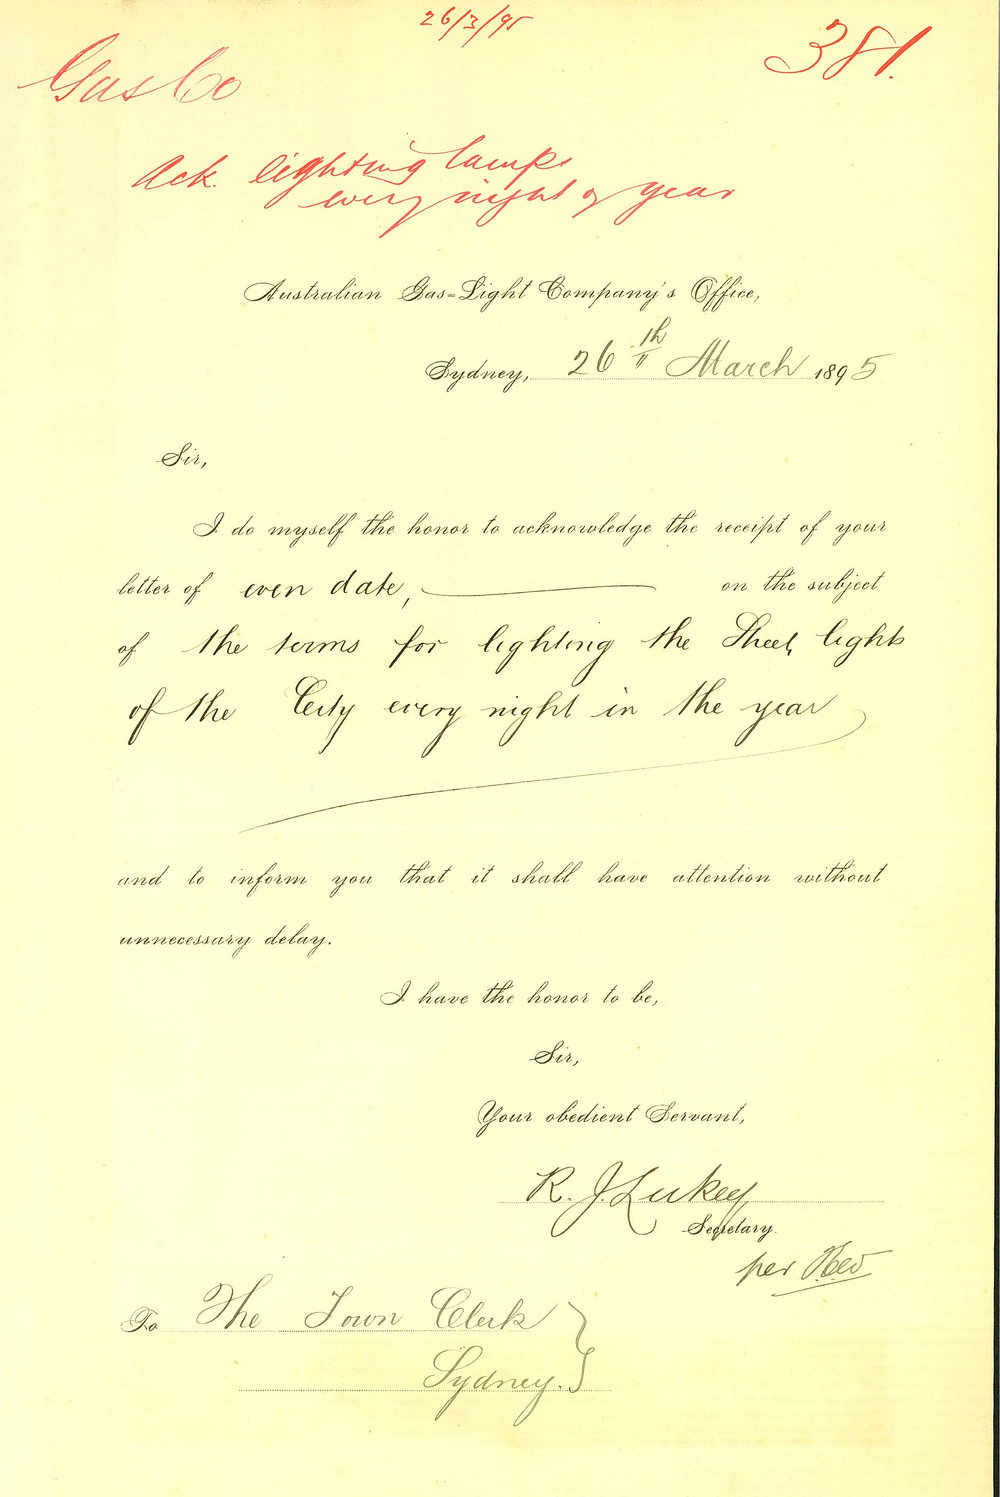 26/3/95
Gas Co
381.
Ack. lighting lamps
every night of year
Australian Gas-Light Company's Office,
Sydney, 26th March 1895
Sir,
I do myself the honor to acknowledge the receipt of your
letter of even date, on the subject
of the terms for lighting the Street lights
of the City every night in the year
and to inform you that it shall have attention without
unnecessary delay.
I have the honor to be,
Sir,
Your obedient Servant,
R. J. Lukey
Secretary.
per
To The Town Clerk
Sydney.